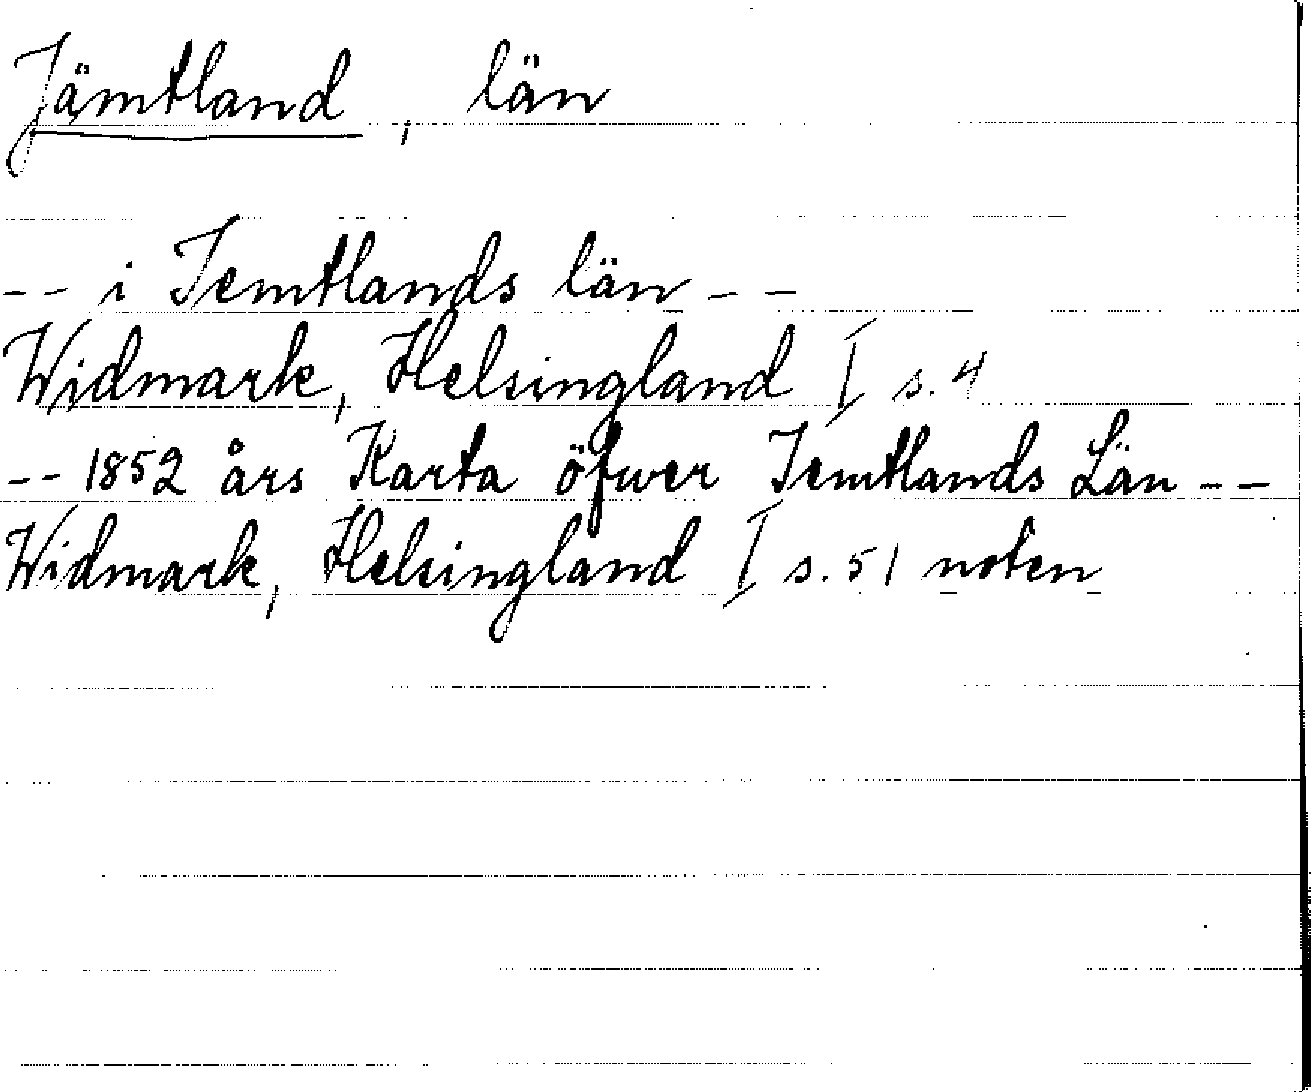 Jämtland, län
-- i Jemtlands län --
Widmark, Helsingland I s. 4
-- 1852 års Karta öfwer Jemtlands Län --
Widmark, Helsingland I s. 51 noten